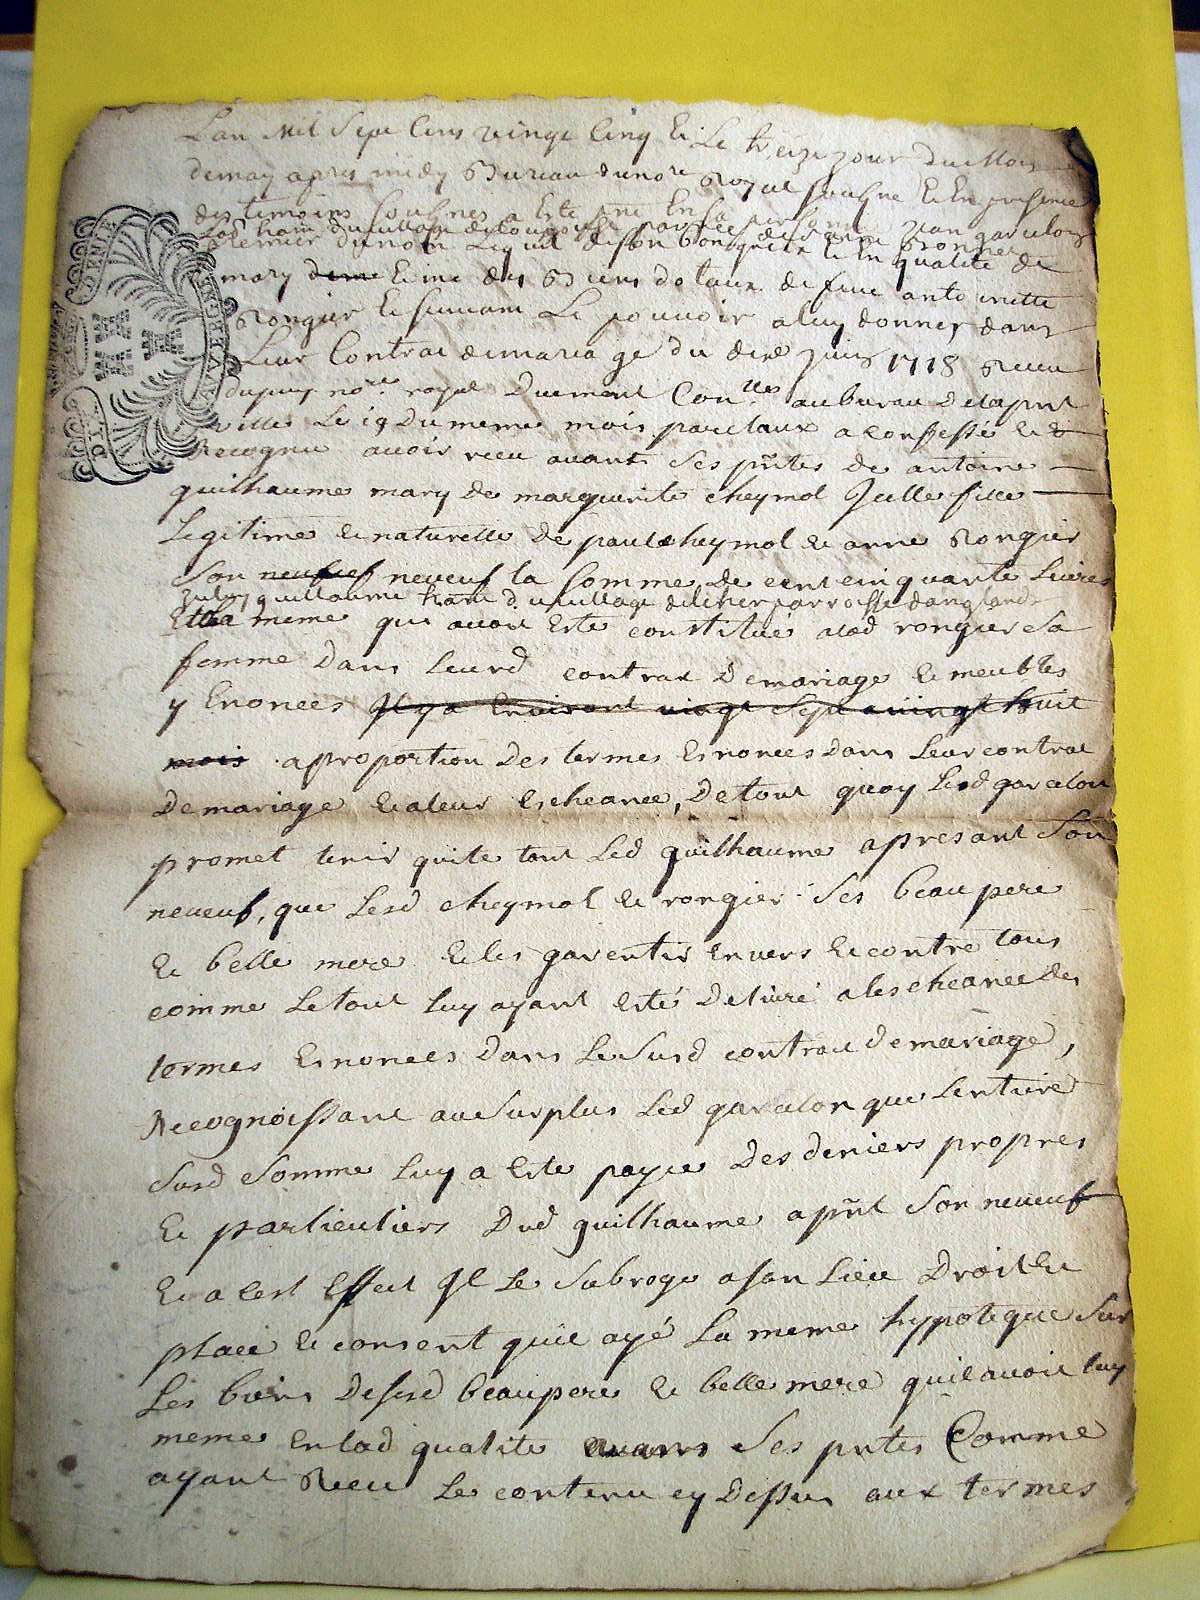 Lan Mil Sept Cens vingt Cinq et Le treize jour du Mois
demay apres midy Bureau du no.re Royal soubsne et en presence
des temoins soubsnes a Este pnt En sa personne Jean garcelon
premier du nom Lequel de son bon gré et En qualité de
mary et me des Biens dotaux de feue antoinette
Rongier et suivant Le pouvoir a luy donner dans
Leur Contrat de mariage du dixe juin 1718 Receu
dupuy no.re royal Duement Con.lé au bureau de lapnt
ville Le 19 Du meme mois par claux a confessé et
Recognu avoir receu avant ses pntes de antoine
guilhaume mary de marguerite cheymol Jcelle fille
Legitime et naturelle de paul cheymol et anne Rongier
son neuveuf neveuf la somme de cent cinquante Livres
Jceluy guillaume hant du village delcher parroisse danglards
Et la meme qui avoit Este constitué alad rongier sa
femme Dans leurd contrat Demariage et meubles
y Enoncés Jl y a Environt vingt sept a vingt huit
mois a proportion Des termes Esnoncés Dans Leur contrat
De mariage et a leur Escheance, De tout quoy Lesd garcelon
promet tenir quite tant Led guilhaume apresant son
neveuf, que Lesd cheymol et rongier ses beau pere
et belle mere et les garentir envers et contre tous
comme Le tout luy ayant esté Delivré a les cheance des
termes Esnoncés Dans Le susd contrat De mariage,
Recognoissant au surplus Led garcelon que Lentiere
susd somme luy a Este payee Des deniers propres
et particuliers Dud guilhaume apñt son neveuf
Et a cest Effect Jl Le subroge a son Lieu Droit et
place et consent quil ayé La meme hypoteque sur
Les biens Desesd beaupere et belle mere quil avoit luy
meme En lad qualité avans ses pntes Comme
ayant Receu Le contenu cy Dessus aux termes